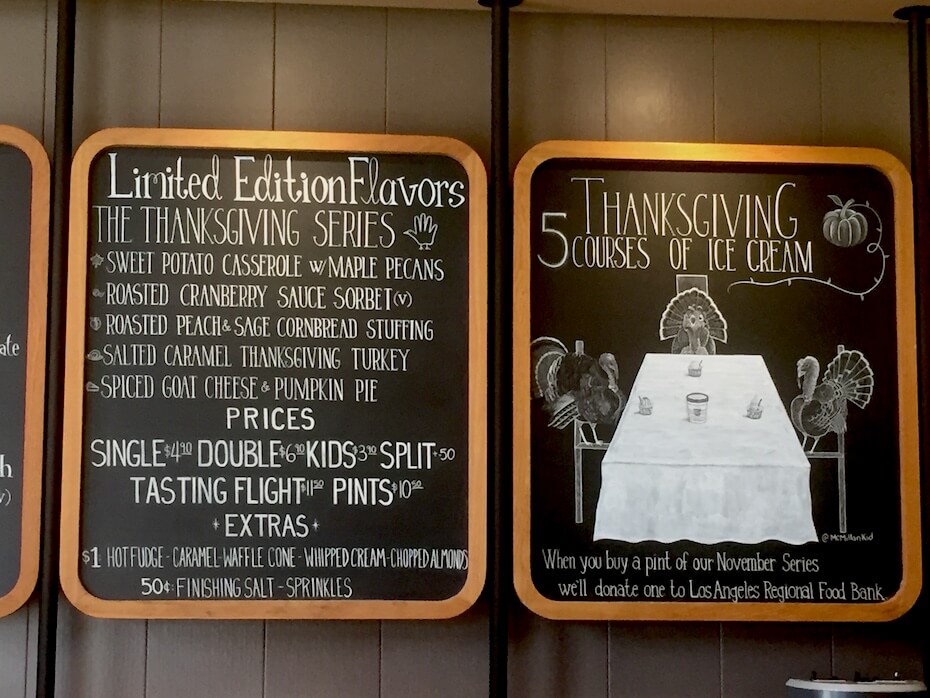 ate
h
v)
Limited Edition Flavors
THE THANKSGIVING SERIES
SWEET POTATO CASSEROLE w/MAPLE PECANS
ROASTED CRANBERRY SAUCE SORBET (v)
ROASTED PEACH & SAGE CORNBREAD STUFFING
SALTED CARAMEL THANKSGIVING TURKEY
SPICED GOAT CHEESE & PUMPKIN PIE
PRICES
SINGLE $4.90 DOUBLE $6.90 KIDS $3.90 SPLIT +.50
TASTING FLIGHT $11.50 PINTS $10.50
EXTRAS
$1: HOT FUDGE - CARAMEL - WAFFLE CONE - WHIPPED CREAM - CHOPPED ALMONDS
50¢: FINISHING SALT - SPRINKLES
5 THANKSGIVING
COURSES OF ICE CREAM
@McMillanKid
When you buy a pint of our November Series
we'll donate one to Los Angeles Regional Food Bank.